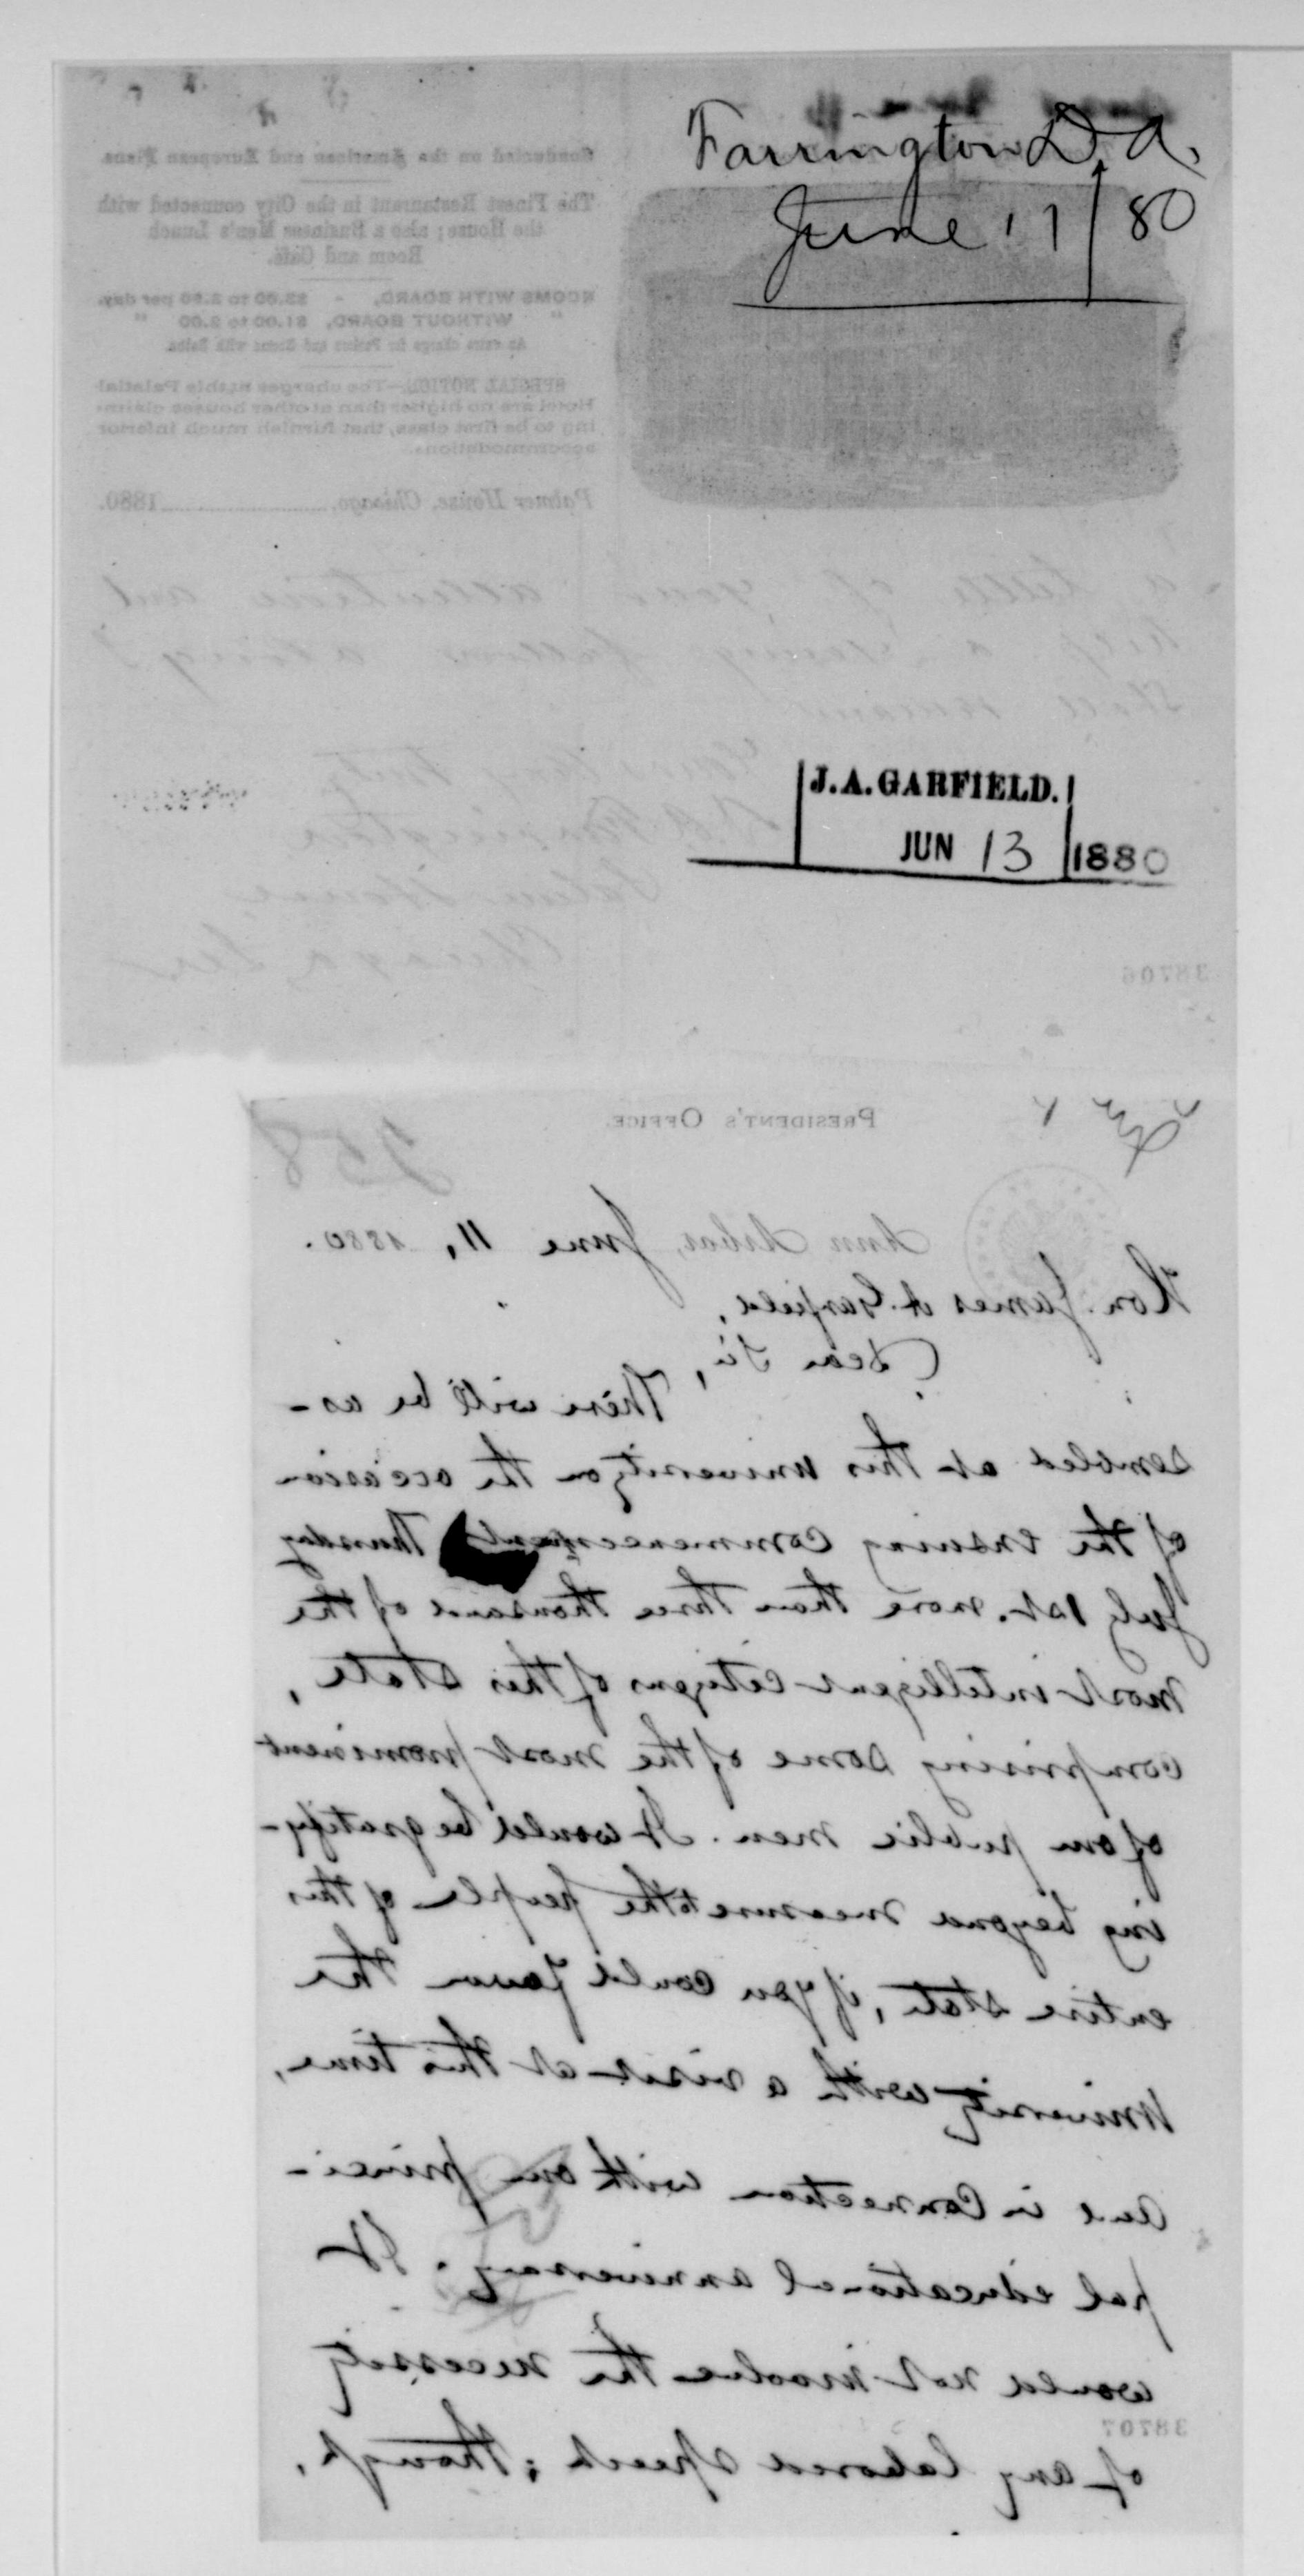 Farrington D. A.
June 11/80
Conducted on the American and European Plans.
The Finest Restaurant in the City connected with
the House; also a Business Men's Lunch
Room and Café.
ROOMS WITH BOARD, - $3.00 to 3.50 per day.
" WITHOUT BOARD, $1.00 to 2.00 "
No extra charge for Parlors and Rooms with Baths.
SPECIAL NOTICE.—The charges at this Palatial
Hotel are no higher than at other houses claim-
ing to be first class, that furnish much inferior
accommodations.
Palmer House, Chicago, 1880.
a little of your attention and
help a young fellow along I
shall remain
Yours very truly
D. A. Farrington
Palmer House
Chicago
J. A. GARFIELD.
JUN 13 1880
38706
PRESIDENT'S OFFICE.
258
Ann Arbor, June 11, 1880.
Hon. James A. Garfield,
Dear Sir,
There will be as-
sembled at this University on the occasion
of the ensuing commencement Thursday
July 1st. more than three thousand of the
most intelligent citizens of this state,
comprising some of the most prominent
of our public men. It would be gratify-
ing beyond measure to the people of this
entire state, if you could favor the
University with a visit at this time,
and in connection with our princi-
pal educational anniversary. It
would not involve the necessity
38707
of any labored speech; though,